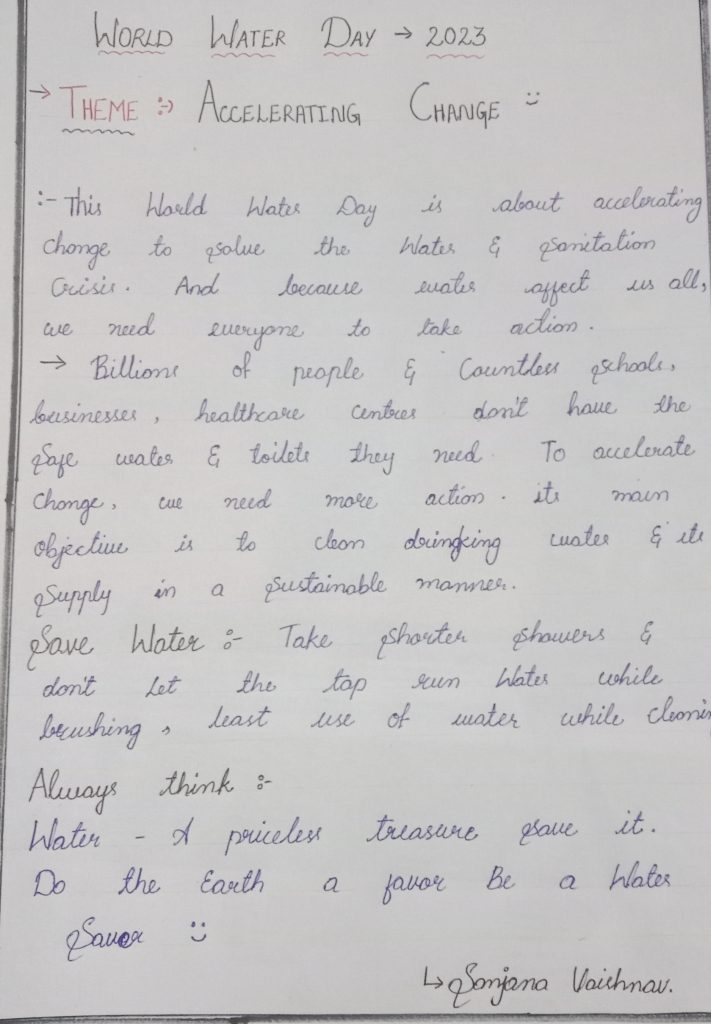 WORLD WATER DAY → 2023
→ THEME :-) ACCELERATING CHANGE :)
:- This World Water Day is about accelerating
change to solve the Water & Sanitation
Crisis. And because water affect us all,
we need everyone to take action.
→ Billions of people & Countless schools,
businesses, healthcare centres don't have the
Safe water & toilets they need. To accelerate
change, we need more action. its main
objective is to clean dringking water & its
Supply in a sustainable manner.
Save Water :- Take shorter showers &
don't Let the tap run Water while
brushing, least use of water while cleanin
Always think :-
Water - A priceless treasure save it.
Do the Earth a favor Be a Water
Saver :)
↳ Sanjana Vaishnav.